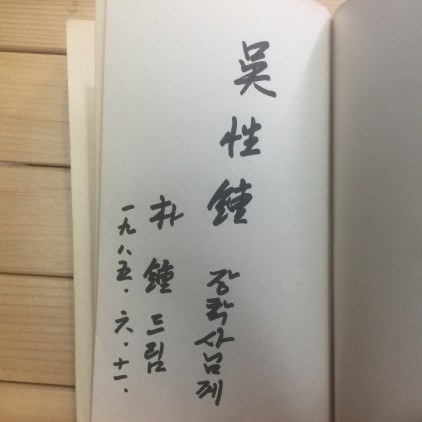 吳性鍾 장학사님께
朴鍾 드림
一九八五. 六. 十一.